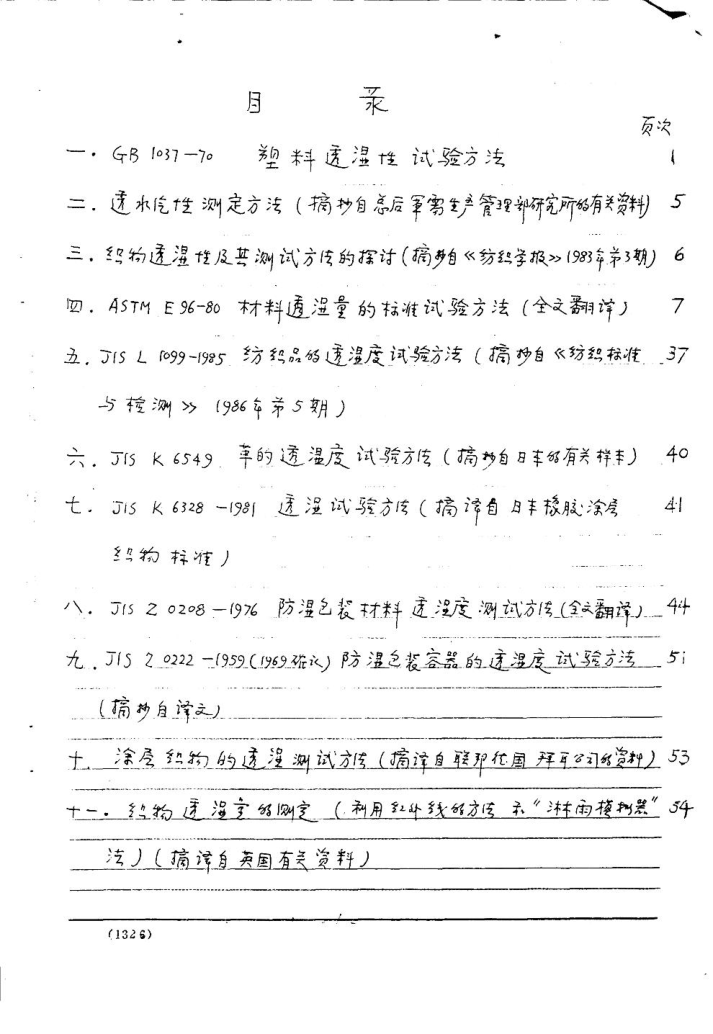 目 录
页次
一. GB 1037—70 塑料透湿性试验方法 1
二. 透水汽性测定方法(摘抄自总后军需生产管理部研究所的有关资料) 5
三. 织物透湿性及其测试方法的探讨(摘抄自《纺织学报》1983年第3期) 6
四. ASTM E 96-80 材料透湿量的标准试验方法(全文翻译) 7
五. JIS L 1099-1985 纺织品的透湿度试验方法(摘抄自《纺织标准 37
与检测》1986年第5期)
六. JIS K 6549 革的透湿度试验方法(摘抄自日本的有关样本) 40
七. JIS K 6328—1981 透湿试验方法(摘译自日本橡胶涂层 41
织物标准)
八. JIS Z 0208—1976 防湿包装材料透湿度测试方法(全文翻译) 44
九. JIS Z 0222—1959(1969确认)防湿包装容器的透湿度试验方法 51
(摘抄自译文)
十. 涂层织物的透湿测试方法(摘译自联邦德国拜耳公司的资料) 53
十一. 织物透湿量的测定(利用红外线的方法和"淋雨模拟器" 54
法)(摘译自英国有关资料)
(1326)